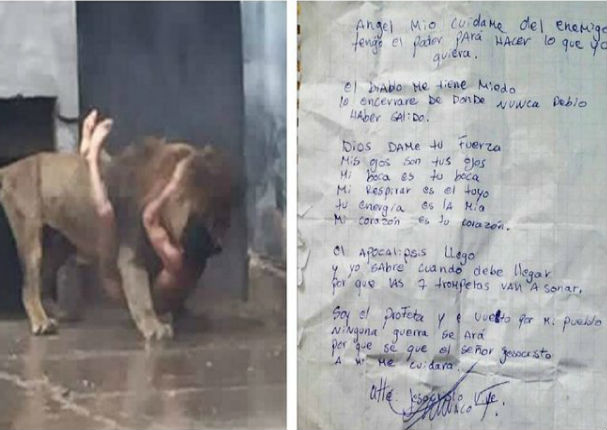 Angel Mio cuidame del enemigo
tengo el poder pARA HACER lo que yo
quiera.
el DiABlo Me tiene Miedo
lo encerrare De DONDE NUNCA Debio
HABer SALiDO.
Dios DAME tu Fuerza
Mis ojos son tus ojos
Mi boca es tu boca
Mi Respirar es el tuyo
tu energia es lA MiA
Mi corazón es tu corazón.
el APOCAlipsis llego
y yo SABre cuando debe llegar
por que lAS 7 trompetas VAN A sonar.
Soy el profeta y e vuelto por Mi pueblo
Ninguna guerra se ArA
por que se que el señor Jesucristo
A Mi Me cuidara.
Atte: